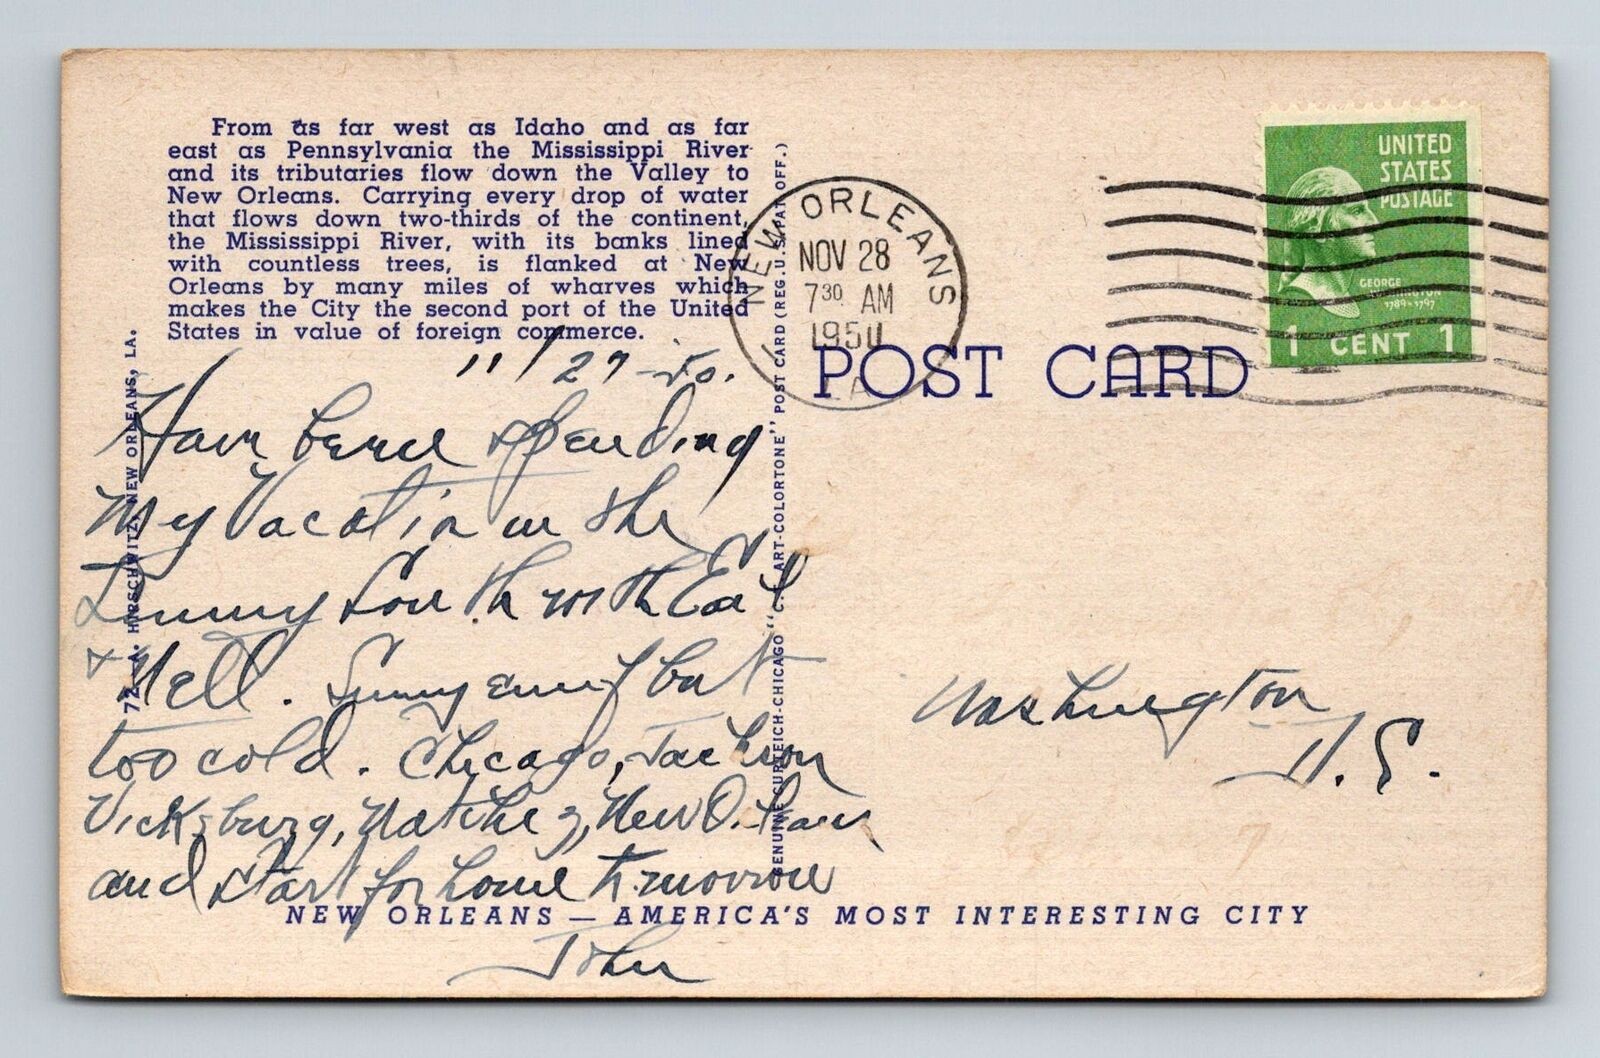 From as far west as Idaho and as far
east as Pennsylvania the Mississippi River
and its tributaries flow down the Valley to
New Orleans. Carrying every drop of water
that flows down two-thirds of the continent,
the Mississippi River, with its banks lined
with countless trees, is flanked at New
Orleans by many miles of wharves which
makes the City the second port of the United
States in value of foreign commerce.
11/27-50.
Have been spending
my Vacation in the
Sunny South with Earl
& Nell. Sunny enuf but
too cold. Chicago, Jackson
Vicksburg, Natchez, New Orleans
and start for home tomorrow
John
72—A. HIRSCHWITZ, NEW ORLEANS, LA.
GENUINE CURTEICH-CHICAGO "C.T. ART-COLORTONE" POST CARD (REG. U. S. PAT. OFF.)
NEW ORLEANS
NOV 28
7 30 AM
1950
LA
POST CARD
UNITED
STATES
POSTAGE
GEORGE
WASHINGTON
1789-1797
1 CENT 1
Washington
D.C.
NEW ORLEANS — AMERICA'S MOST INTERESTING CITY